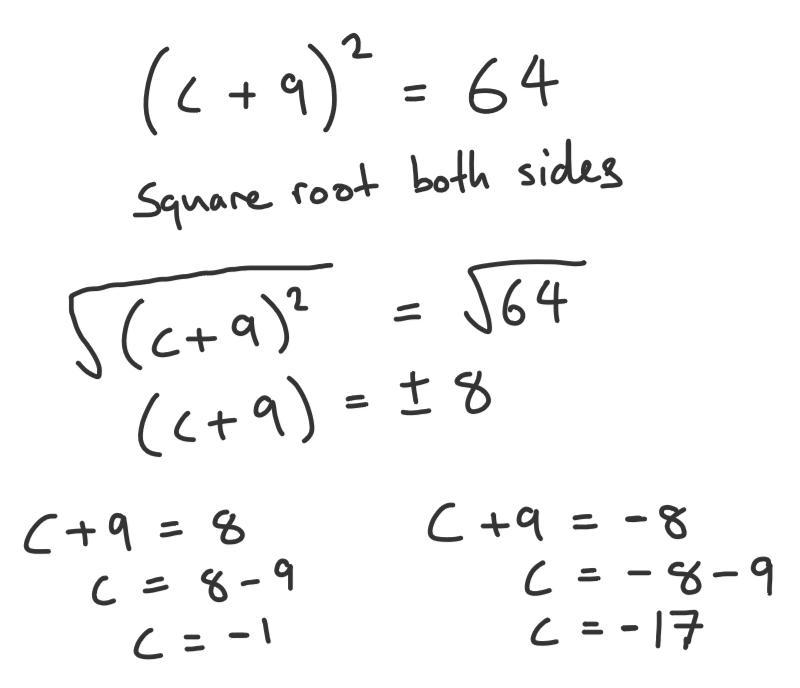 (c + 9)² = 64
Square root both sides
√(c+9)² = √64
(c+9) = ± 8
c+9 = 8
c = 8-9
c = -1
c+9 = -8
c = -8-9
c = -17